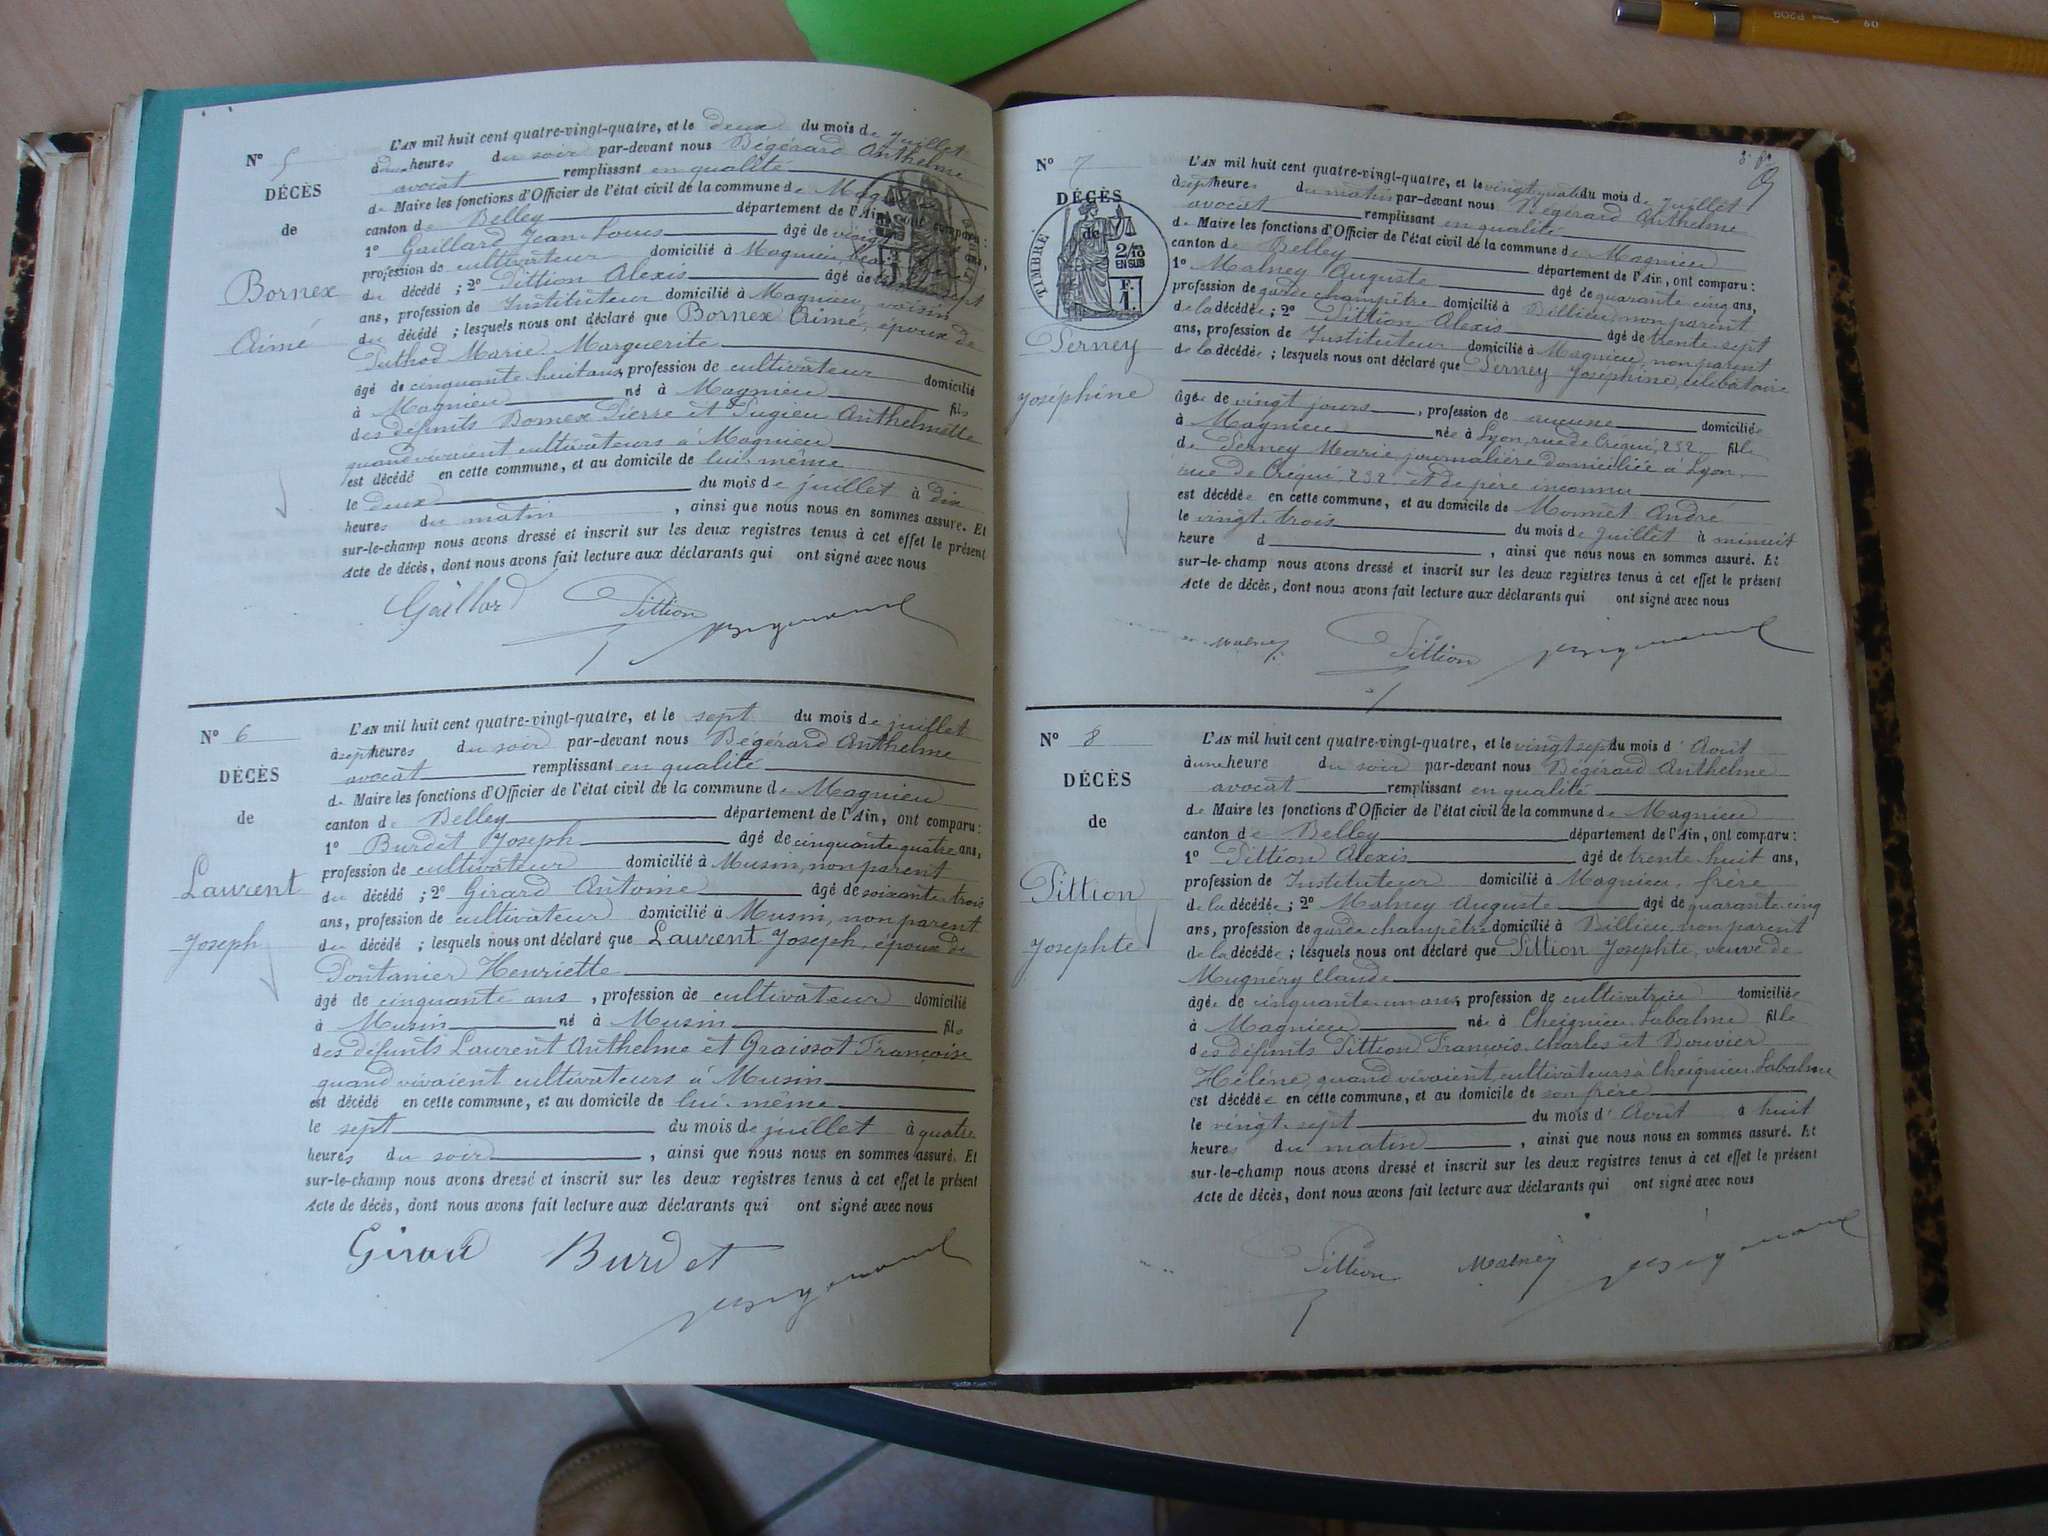 N° 5
DÉCÈS
de
Bornex
Aimé
L'AN mil huit cent quatre-vingt-quatre, et le deux du mois de juillet
à heures du soir par-devant nous Bégérard Anthelme
avocat remplissant en qualité
de Maire les fonctions d'Officier de l'état civil de la commune de
canton de Belley département de l'Ain, ont comparu :
1° Gaillard Jean Louis âgé de ans,
profession de cultivateur domicilié à Magnieu,
du décédé ; 2° Pittion Alexis âgé de trente sept
ans, profession de Instituteur domicilié à Magnieu, voisin
du décédé ; lesquels nous ont déclaré que Bornex Aimé, époux de
Puthod Marie Marguerite
âgé de cinquante huit ans, profession de cultivateur domicilié
à Magnieu né à Magnieu fils
des défunts Bornex Pierre et Pugieu Anthelmette
quand vivaient cultivateurs à Magnieu
est décédé en cette commune, et au domicile de lui-même
le deux du mois de juillet à dix
heures du matin , ainsi que nous nous en sommes assuré. Et
sur-le-champ nous avons dressé et inscrit sur les deux registres tenus à cet effet le présent
Acte de décès, dont nous avons fait lecture aux déclarants qui ont signé avec nous
Gaillard Pittion
N° 6
DÉCÈS
de
Laurent
Joseph
L'AN mil huit cent quatre-vingt-quatre, et le sept du mois de juillet
à sept heures du soir par-devant nous Bégérard Anthelme
avocat remplissant en qualité
de Maire les fonctions d'Officier de l'état civil de la commune de Magnieu
canton de Belley département de l'Ain, ont comparu :
1° Burdet Joseph âgé de cinquante quatre ans,
profession de cultivateur domicilié à Musin, non parent
du décédé ; 2° Girard Antoine âgé de soixante trois
ans, profession de cultivateur domicilié à Musin, non parent
du décédé ; lesquels nous ont déclaré que Laurent Joseph, époux de
Pontanier Henriette
âgé de cinquante ans , profession de cultivateur domicilié
à Musin né à Musin fils
des défunts Laurent Anthelme et Graissot Françoise
quand vivaient cultivateurs à Musin
est décédé en cette commune, et au domicile de lui-même
le sept du mois de juillet à quatre
heures du soir , ainsi que nous nous en sommes assuré. Et
sur-le-champ nous avons dressé et inscrit sur les deux registres tenus à cet effet le présent
Acte de décès, dont nous avons fait lecture aux déclarants qui ont signé avec nous
Girard Burdet
N° 7
DÉCÈS
de
TIMBRE
2/10
EN SUS
F.
1.
Perney
Joséphine
L'AN mil huit cent quatre-vingt-quatre, et le vingt quatre du mois de juillet
à sept heures du matin par-devant nous Bégérard Anthelme
avocat remplissant en qualité
de Maire les fonctions d'Officier de l'état civil de la commune de Magnieu
canton de Belley département de l'Ain, ont comparu :
1° Malney Auguste âgé de quarante cinq ans,
profession de garde champêtre domicilié à Billieu, non parent
de la décédée ; 2° Pittion Alexis âgé de trente-sept
ans, profession de Instituteur domicilié à Magnieu, non parent
de la décédée ; lesquels nous ont déclaré que Perney Joséphine, célibataire
âgée de vingt jours , profession de aucune domiciliée
à Magnieu née à Lyon, rue de Créqui, 232 fille
de Perney Marie, journalière domiciliée à Lyon,
rue de Créqui, 232. et de père inconnu
est décédée en cette commune, et au domicile de Monnet André
le vingt-trois du mois de juillet à minuit
heure d , ainsi que nous nous en sommes assuré. Et
sur-le-champ nous avons dressé et inscrit sur les deux registres tenus à cet effet le présent
Acte de décès, dont nous avons fait lecture aux déclarants qui ont signé avec nous
Malney Pittion
N° 8
DÉCÈS
de
Pittion
Josephte
L'AN mil huit cent quatre-vingt-quatre, et le vingt sept du mois d'Août
à une heure du soir par-devant nous Bégérard Anthelme
avocat remplissant en qualité
de Maire les fonctions d'Officier de l'état civil de la commune de Magnieu
canton de Belley département de l'Ain, ont comparu :
1° Pittion Alexis âgé de trente-huit ans,
profession de Instituteur domicilié à Magnieu, frère
de la décédée ; 2° Malney Auguste âgé de quarante-cinq
ans, profession de garde champêtre domicilié à Billieu, non parent
de la décédée ; lesquels nous ont déclaré que Pittion Josephte, veuve de
Mugnéry Claude
âgée de cinquante-un ans, profession de cultivatrice domiciliée
à Magnieu née à Cheignieu Labalme fille
des défunts Pittion François Charles et Bouvier
Hélène, quand vivaient, cultivateurs à Cheignieu Labalme
est décédée en cette commune, et au domicile de son frère
le vingt-sept du mois d'Août à huit
heures du matin , ainsi que nous nous en sommes assuré. Et
sur-le-champ nous avons dressé et inscrit sur les deux registres tenus à cet effet le présent
Acte de décès, dont nous avons fait lecture aux déclarants qui ont signé avec nous
Pittion Malney